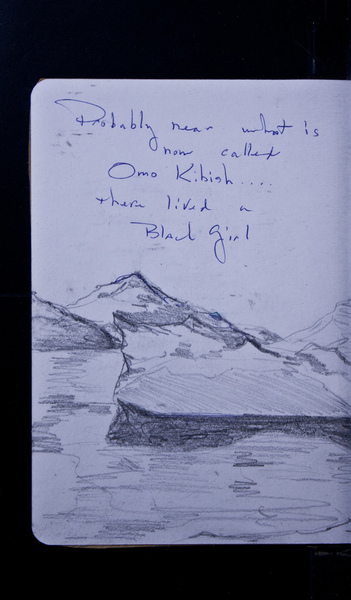 Probably near what is
now called
Omo Kibish....
there lived a
Black Girl